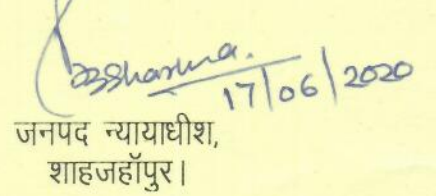 17/06/2020
जनपद न्यायाधीश,
शाहजहॉपुर।